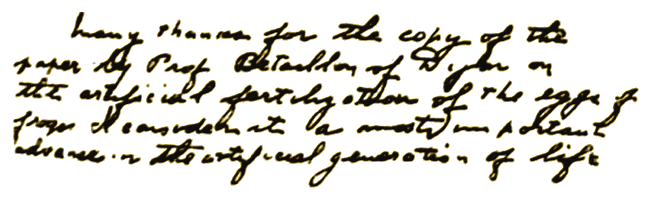 Many thanks for the copy of the
paper by Prof Betaillon of Dijon on
the artificial fertilization of the eggs of
frogs I consider it a most important
advance in the artificial generation of life